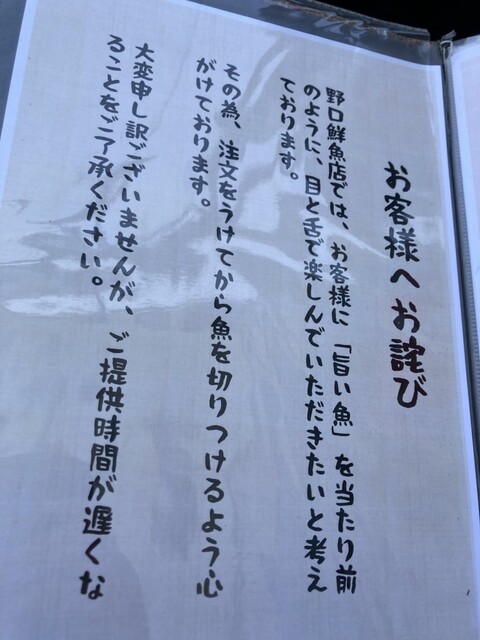 お客様へお詫び
野口鮮魚店では、お客様に「旨い魚」を当たり前
のように、目と舌で楽しんでいただきたいと考え
ております。
その為、注文をうけてから魚を切りつけるよう心
がけております。
大変申し訳ございませんが、ご提供時間が遅くな
ることをご了承ください。